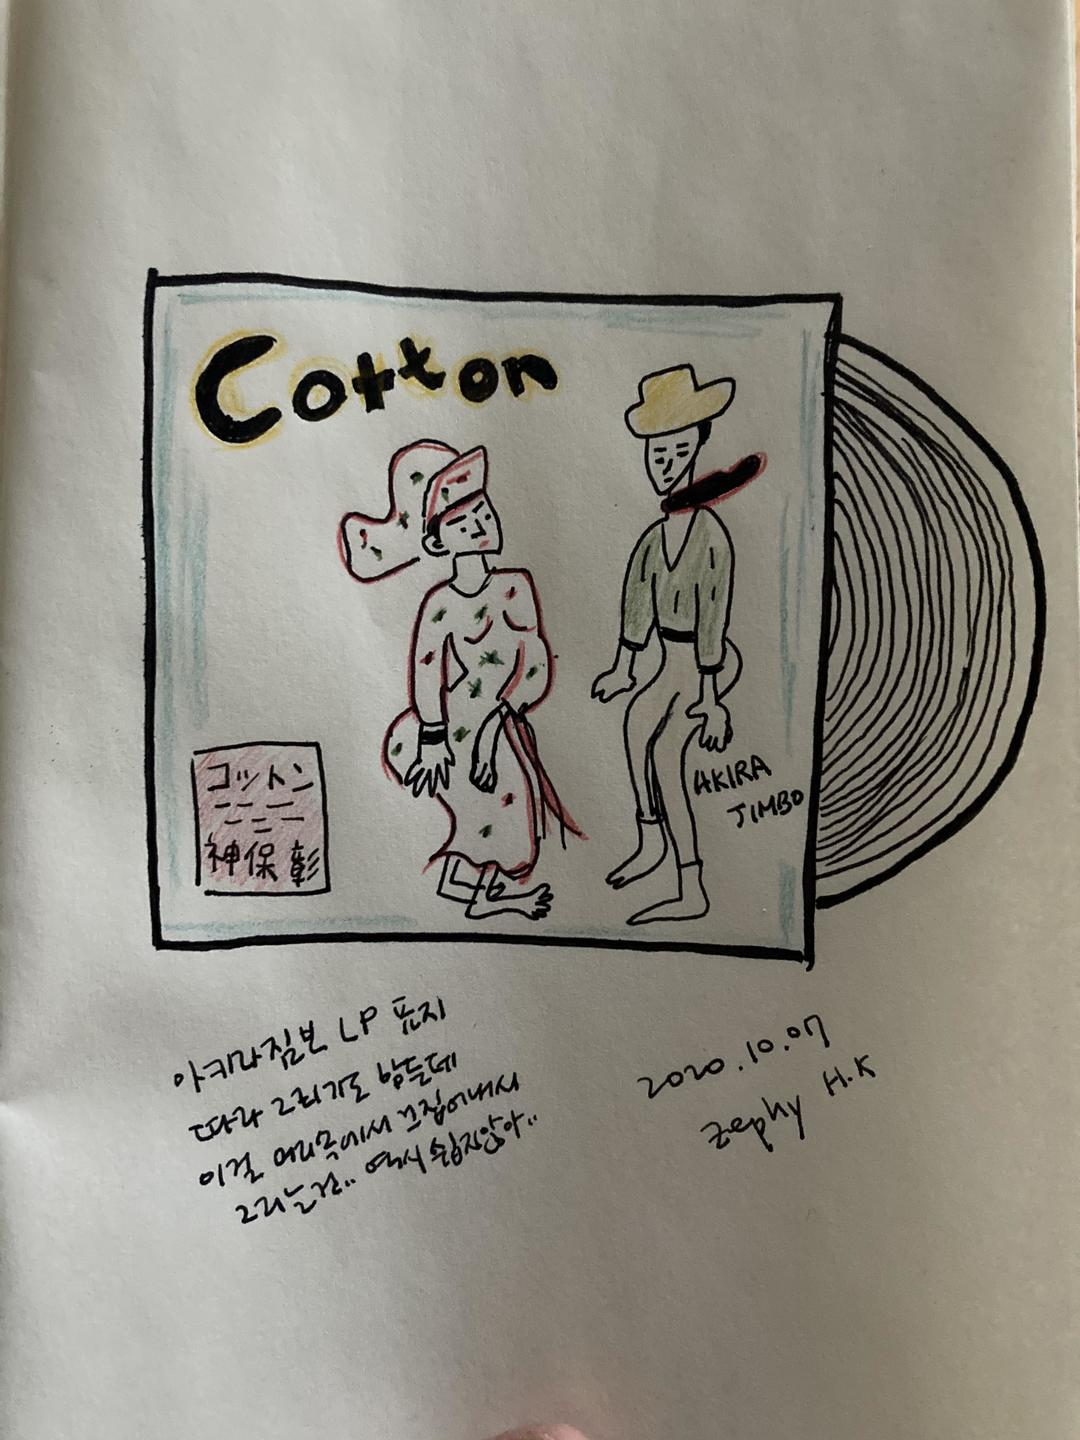 Cotton
コットン
神保 彰
AKIRA
JIMBO
아키라짐보 LP 표지
따라 그리기도 힘든데
이걸 머리속에서 끄집어내서
그리는건.. 역시 쉽지않아..
2020.10.07
zephy H.K